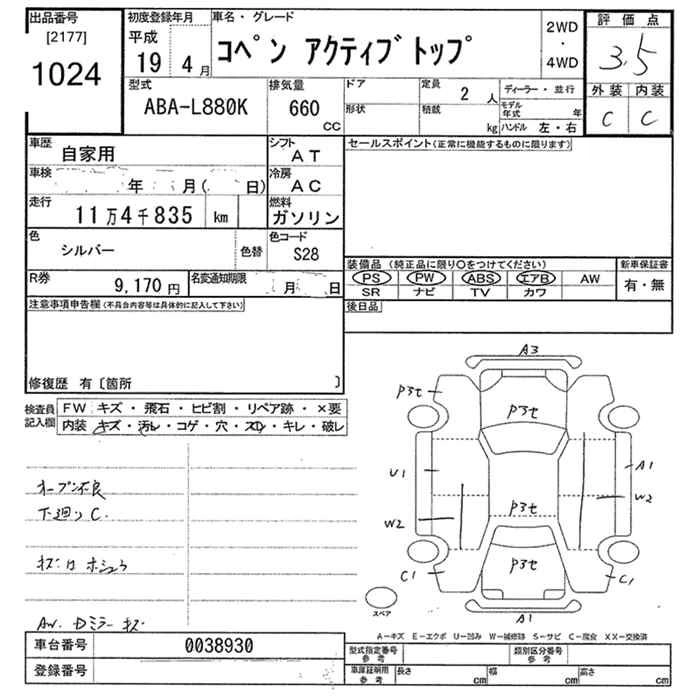 出品番号
[2177]
1024
初度登録年月
平成
19 4 月
車名・グレード
コペン アクティブトップ
2WD
・
4WD
評価点
3.5
外装 内装
C C
型式
ABA-L880K
排気量
660
CC
ドア
形状
定員
2 人
積載
kg
ディーラー・並行
モデル年式 年
ハンドル 左・右
車歴
自家用
シフト
AT
車検
年 月( 日)
冷房
AC
走行
11万4千835 km
燃料
ガソリン
色
シルバー
色替
色コード
S28
R券
9,170 円
名変通知期限
月 日
セールスポイント(正常に機能するものに限ります)
装備品 (純正品に限り○をつけてください)
新車保証書
PS PW ABS エアB AW
有・無
SR ナビ TV カワ
後日品
注意事項申告欄(不具合内容等は具体的に記入して下さい)
修復歴 有〔箇所 〕
検査員記入欄
FW キズ・飛石・ヒビ割・リペア跡・×要
内装 キズ・汚レ・コゲ・穴・スレ・キレ・破レ
オープン不良
下廻りC.
キズ有 ホシュウ
AW. ドミラー キズ
A3
P3t
P3t
U1
A1
W2
W2
P3t
P3t
C1
C1
A1
スペア
A-キズ E-エクボ U-凹み W-補修跡 S-サビ C-腐食 XX-交換済
車台番号
0038930
登録番号
型式指定番号
参考
類別区分番号
参考
車庫証明用
参考
長さ cm
幅 cm
高さ cm